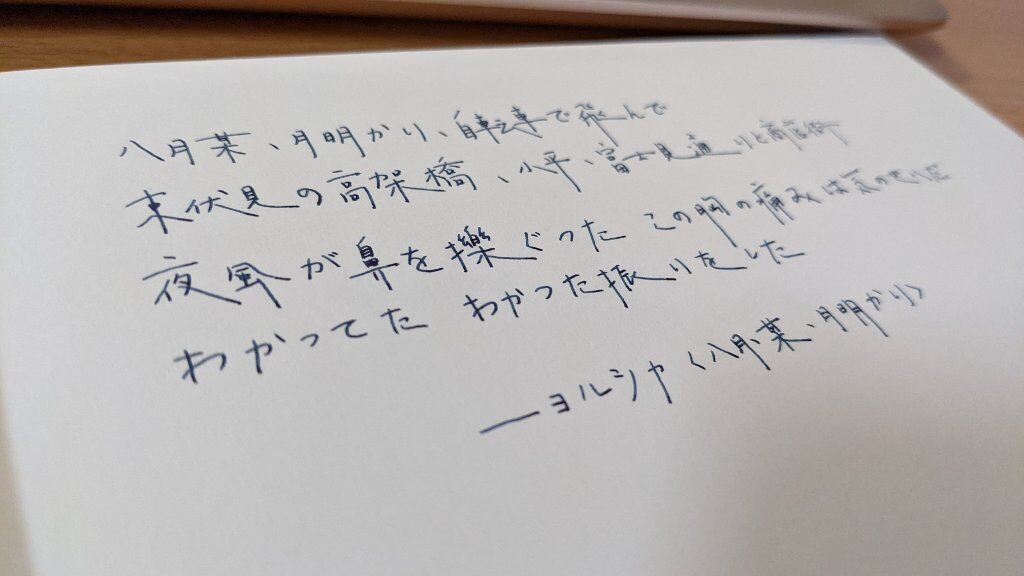 八月某、月明かり、自転車で飛んで
東伏見の高架橋、小平、富士見通りと商店街
夜風が鼻を擽ぐった この胸の痛みは気のせいだ
わかってた わかった振りをした
——ヨルシカ〈八月、某、月明かり〉